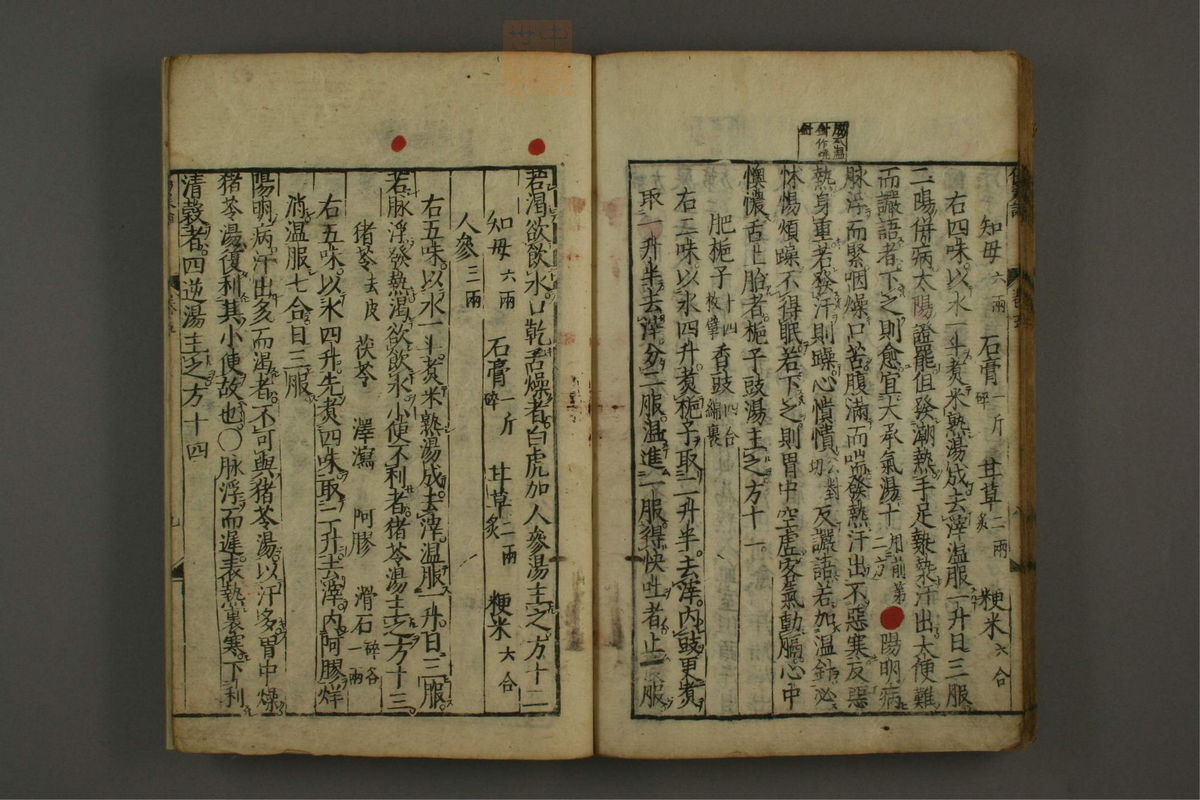 知母六兩 石膏一斤碎 甘草二兩炙 粳米六合
右四味以水一斗煮米熟湯成去滓溫服一升日三服
二陽併病太陽證罷但發潮熱手足漐漐汗出大便難
而讝語者下之則愈宜大承氣湯十二用前第二方 陽明病
脉浮而緊咽燥口苦腹滿而喘發熱汗出不惡寒反惡
熱身重若發汗則躁心憒憒公對切反讝語若加温針必
怵惕煩躁不得眠若下之則胃中空虛客氣動膈心中
懊憹舌上胎者梔子豉湯主之方十一
肥梔子十四枚擘 香豉四合綿裹
右二味以水四升煮梔子取二升半去滓内豉更煮
取一升半去滓分二服温進一服得快吐者止一服
若渴欲飲水口乾舌燥者白虎加人參湯主之方十二
知母六兩 石膏一斤碎 甘草二兩炙 粳米六合
人參三兩
右五味以水一斗煮米熟湯成去滓温服一升日三服
若脉浮發熱渴欲飲水小便不利者猪苓湯主之方十三
猪苓去皮 茯苓 澤瀉 阿膠 滑石碎各一兩
右五味以水四升先煮四味取二升去滓内阿膠烊
消温服七合日三服
陽明病汗出多而渴者不可與猪苓湯以汗多胃中燥
猪苓湯復利其小便故也○脉浮而遲表熱裏寒下利
清穀者四逆湯主之方十四